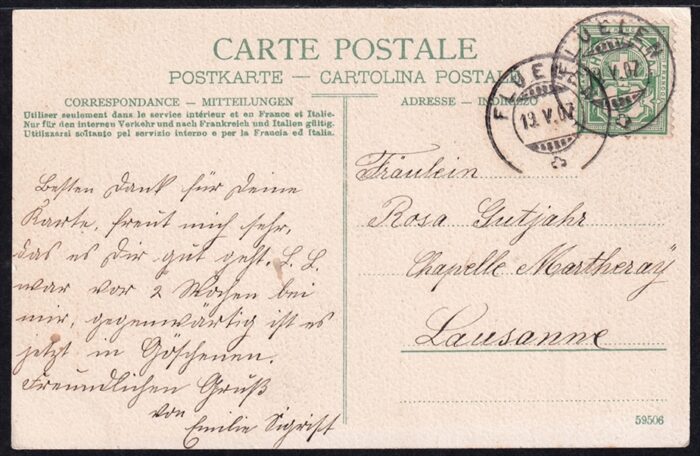 CARTE POSTALE
POSTKARTE — CARTOLINA POSTALE
CORRESPONDANCE – MITTEILUNGEN
Utiliser seulement dans le service intérieur et en France et Italie.
Nur für den internen Verkehr und nach Frankreich und Italien gültig.
Utilizzarsi soltanto pel servizio interno e per la Francia ed Italia.
Besten Dank für Deine
Karte, freut mich sehr,
das es Dir gut geht. L. L.
war vor 2 Wochen bei
mir, gegenwärtig ist es
jetzt in Göschenen.
Freundlichen Gruß
von
Emilie Sigrist
ADRESSE – INDIRIZZO
FLUELEN
13.V.07
FLUELEN
V.07
Fräulein
Rosa Gutjahr
Chapelle Martheray
Lausanne
59506